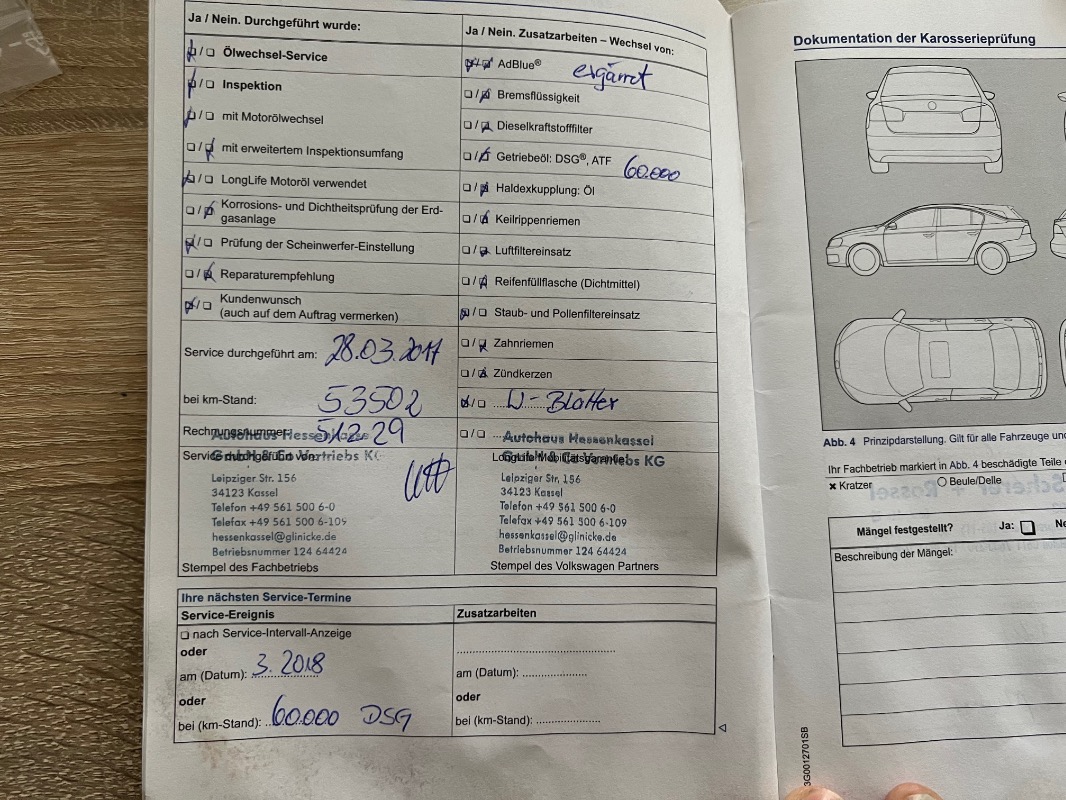 Ja / Nein. Durchgeführt wurde:
❑ / ❑ Ölwechsel-Service
❑ / ❑ Inspektion
❑ / ❑ mit Motorölwechsel
❑ / ❑ mit erweitertem Inspektionsumfang
❑ / ❑ LongLife Motoröl verwendet
❑ / ❑ Korrosions- und Dichtheitsprüfung der Erd-
gasanlage
❑ / ❑ Prüfung der Scheinwerfer-Einstellung
❑ / ❑ Reparaturempfehlung
❑ / ❑ Kundenwunsch
(auch auf dem Auftrag vermerken)
Service durchgeführt am: 28.03.2017
bei km-Stand: 53502
Rechnungsnummer: 512.29
Autohaus Hessenkassel
GmbH & Co Vertriebs KG
Leipziger Str. 156
34123 Kassel
Telefon +49 561 500 6-0
Telefax +49 561 500 6-109
hessenkassel@glinicke.de
Betriebsnummer 124 64424
Stempel des Fachbetriebs
Ja / Nein. Zusatzarbeiten – Wechsel von:
❑ / ❑ AdBlue®
❑ / ❑ Bremsflüssigkeit
❑ / ❑ Dieselkraftstofffilter
❑ / ❑ Getriebeöl: DSG®, ATF 60.000
❑ / ❑ Haldexkupplung: Öl
❑ / ❑ Keilrippenriemen
❑ / ❑ Luftfiltereinsatz
❑ / ❑ Reifenfüllflasche (Dichtmittel)
❑ / ❑ Staub- und Pollenfiltereinsatz
❑ / ❑ Zahnriemen
❑ / ❑ Zündkerzen
❑ / ❑ W-Blätter
❑ / ❑
Autohaus Hessenkassel
GmbH & Co Vertriebs KG
LongLife Mobilitätsgarantie
Leipziger Str. 156
34123 Kassel
Telefon +49 561 500 6-0
Telefax +49 561 500 6-109
hessenkassel@glinicke.de
Betriebsnummer 124 64424
Stempel des Volkswagen Partners
Ihre nächsten Service-Termine
Service-Ereignis
❑ nach Service-Intervall-Anzeige
oder
am (Datum): 3.2018
oder
bei (km-Stand): 60.000 DSG
Zusatzarbeiten
am (Datum):
oder
bei (km-Stand):
3G0012701SB
Dokumentation der Karosserieprüfung
Abb. 4 Prinzipdarstellung. Gilt für alle Fahrzeuge
Ihr Fachbetrieb markiert in Abb. 4 beschädigte Teile
✖ Kratzer ○ Beule/Delle
Mängel festgestellt? Ja: ❑
Beschreibung der Mängel: